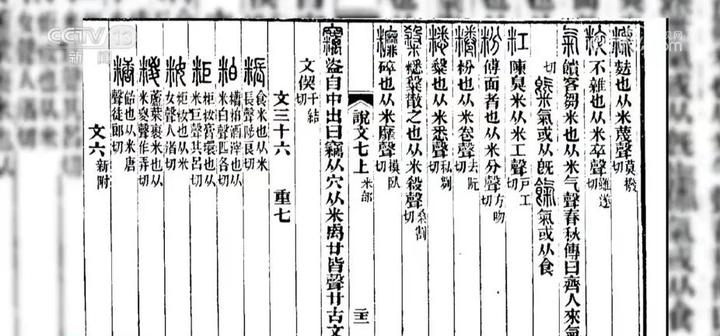 CCTV 13
新闻
麩也从米蔑聲莫撥切
粹 不雜也从米卒聲雖遂切
氣 饋客芻米也从米气聲春秋傳曰齊人來氣
切 氣或从旣 餼 氣或从食
陳臭米从米工聲戶工切
粉 傅面者也从米分聲方吻切
粉也从米卷聲去阮切
糳也从米悉聲私列切
散之也从米殺聲桑割切
碎也从米靡聲摸臥切
說文七上 米部
竊 盜自中出曰竊从穴从米禼廿皆聲廿古文
文偰千結切
文三十六 重七
粻 食米也从米長聲陟良切
粕 糟粕酒滓也从米白聲匹各切
粔 粔籹膏環也从米巨聲其呂切
籹 粔籹也从米女聲人渚切
糉 蘆葉裹米也从米㚇聲作弄切
糖 飴也从米唐聲徒郎切
文六 新附